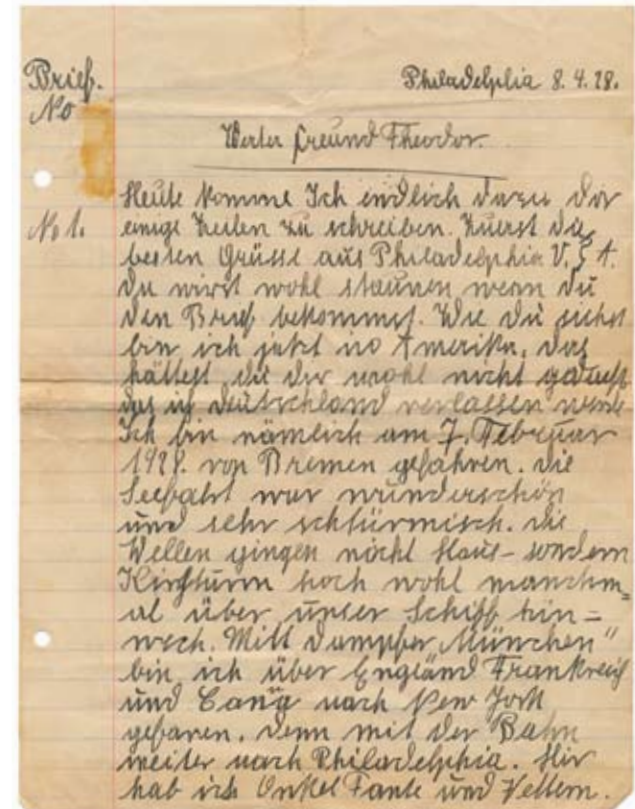 Brief.
No
Philadelphia 8. 4. 28.
Werter Freund Theodor.
No 1.
Heute komme Ich endlich dazu dir
einige Zeilen zu schreiben. Zuerst die
besten Grüsse aus Philadelphia V. S. A.
Du wirst wohl staunen wenn du
den Brief bekommst. Wie du siehst
bin ich jetzt in Amerika, das
hättest du dir wohl nicht gedacht
das ich Deutschland verlassen werde
Ich bin nämlich am 7. Februar
1928. von Bremen gefahren. die
Seefahrt war wunderschön
und sehr schtürmisch. die
Wellen gingen nicht Haus- sondern
Kirchturm hoch wohl manchm=
al über unser Schiff hin=
wech. Mitt dampfer „München"
bin ich über England Frankreich
und nach New York
gefaren. denn mit der Bahn
weiter nach Philadelphia. Hir
hab ich Onkel Tante und Vettern.